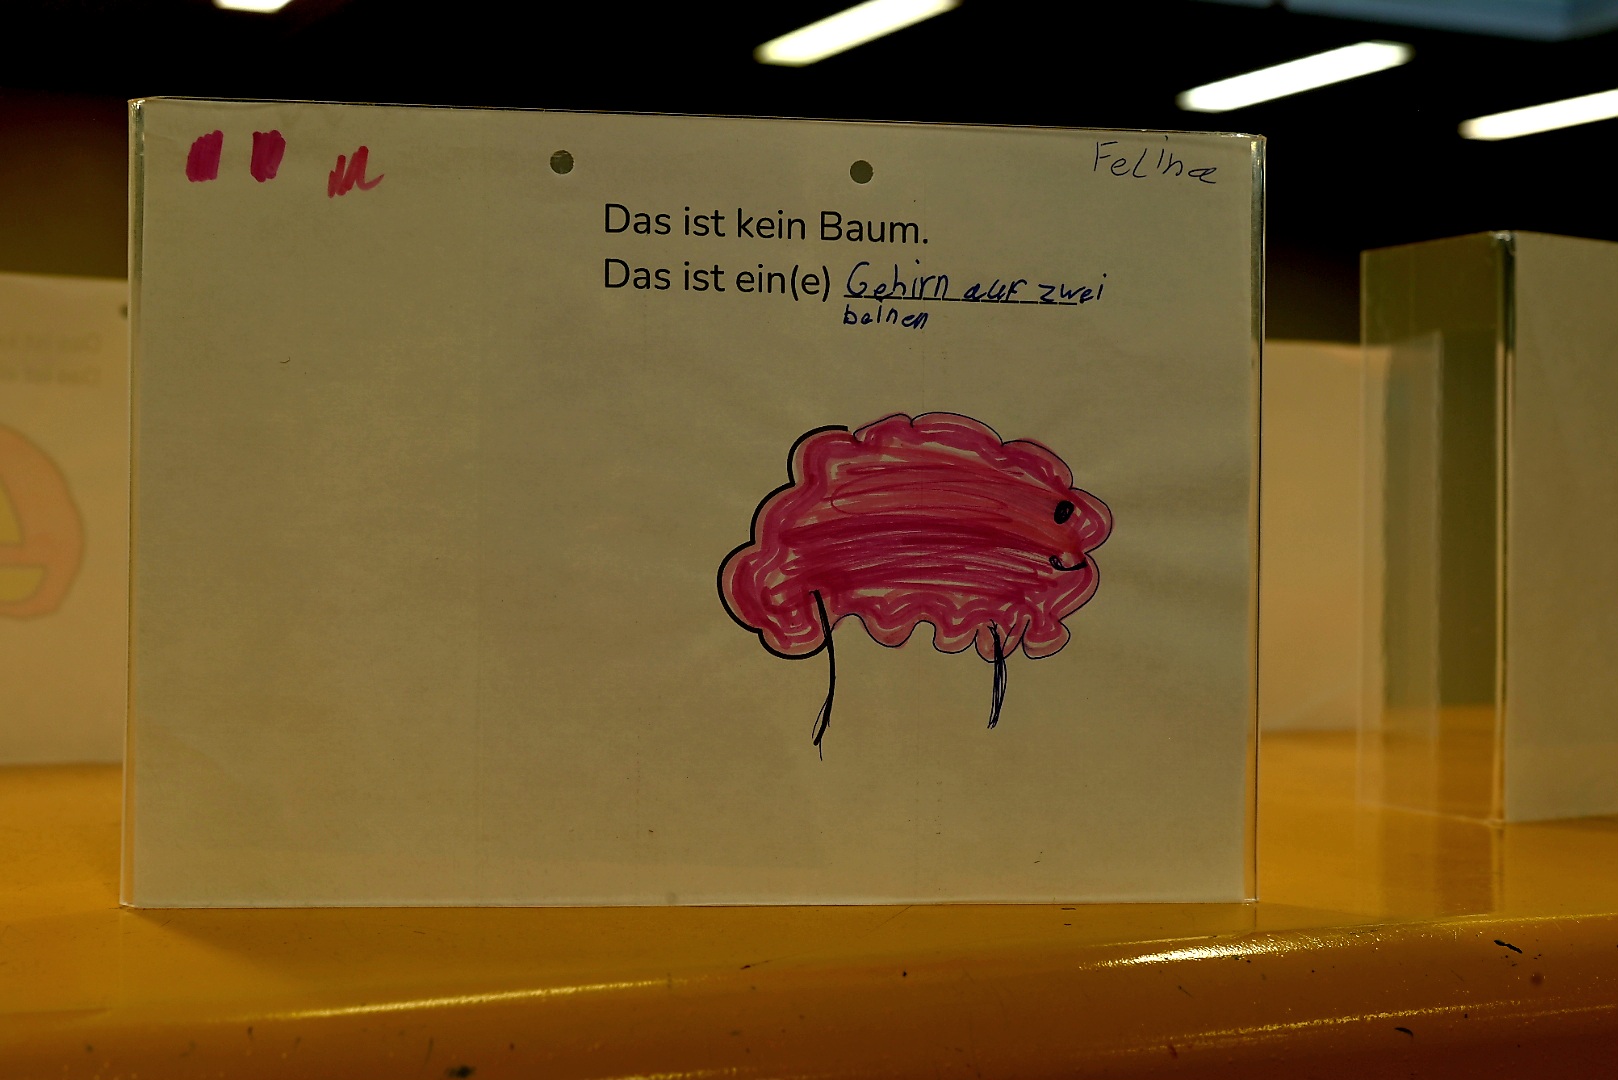 Felina
Das ist kein Baum.
Das ist ein(e) Gehirn auf zwei
beinen